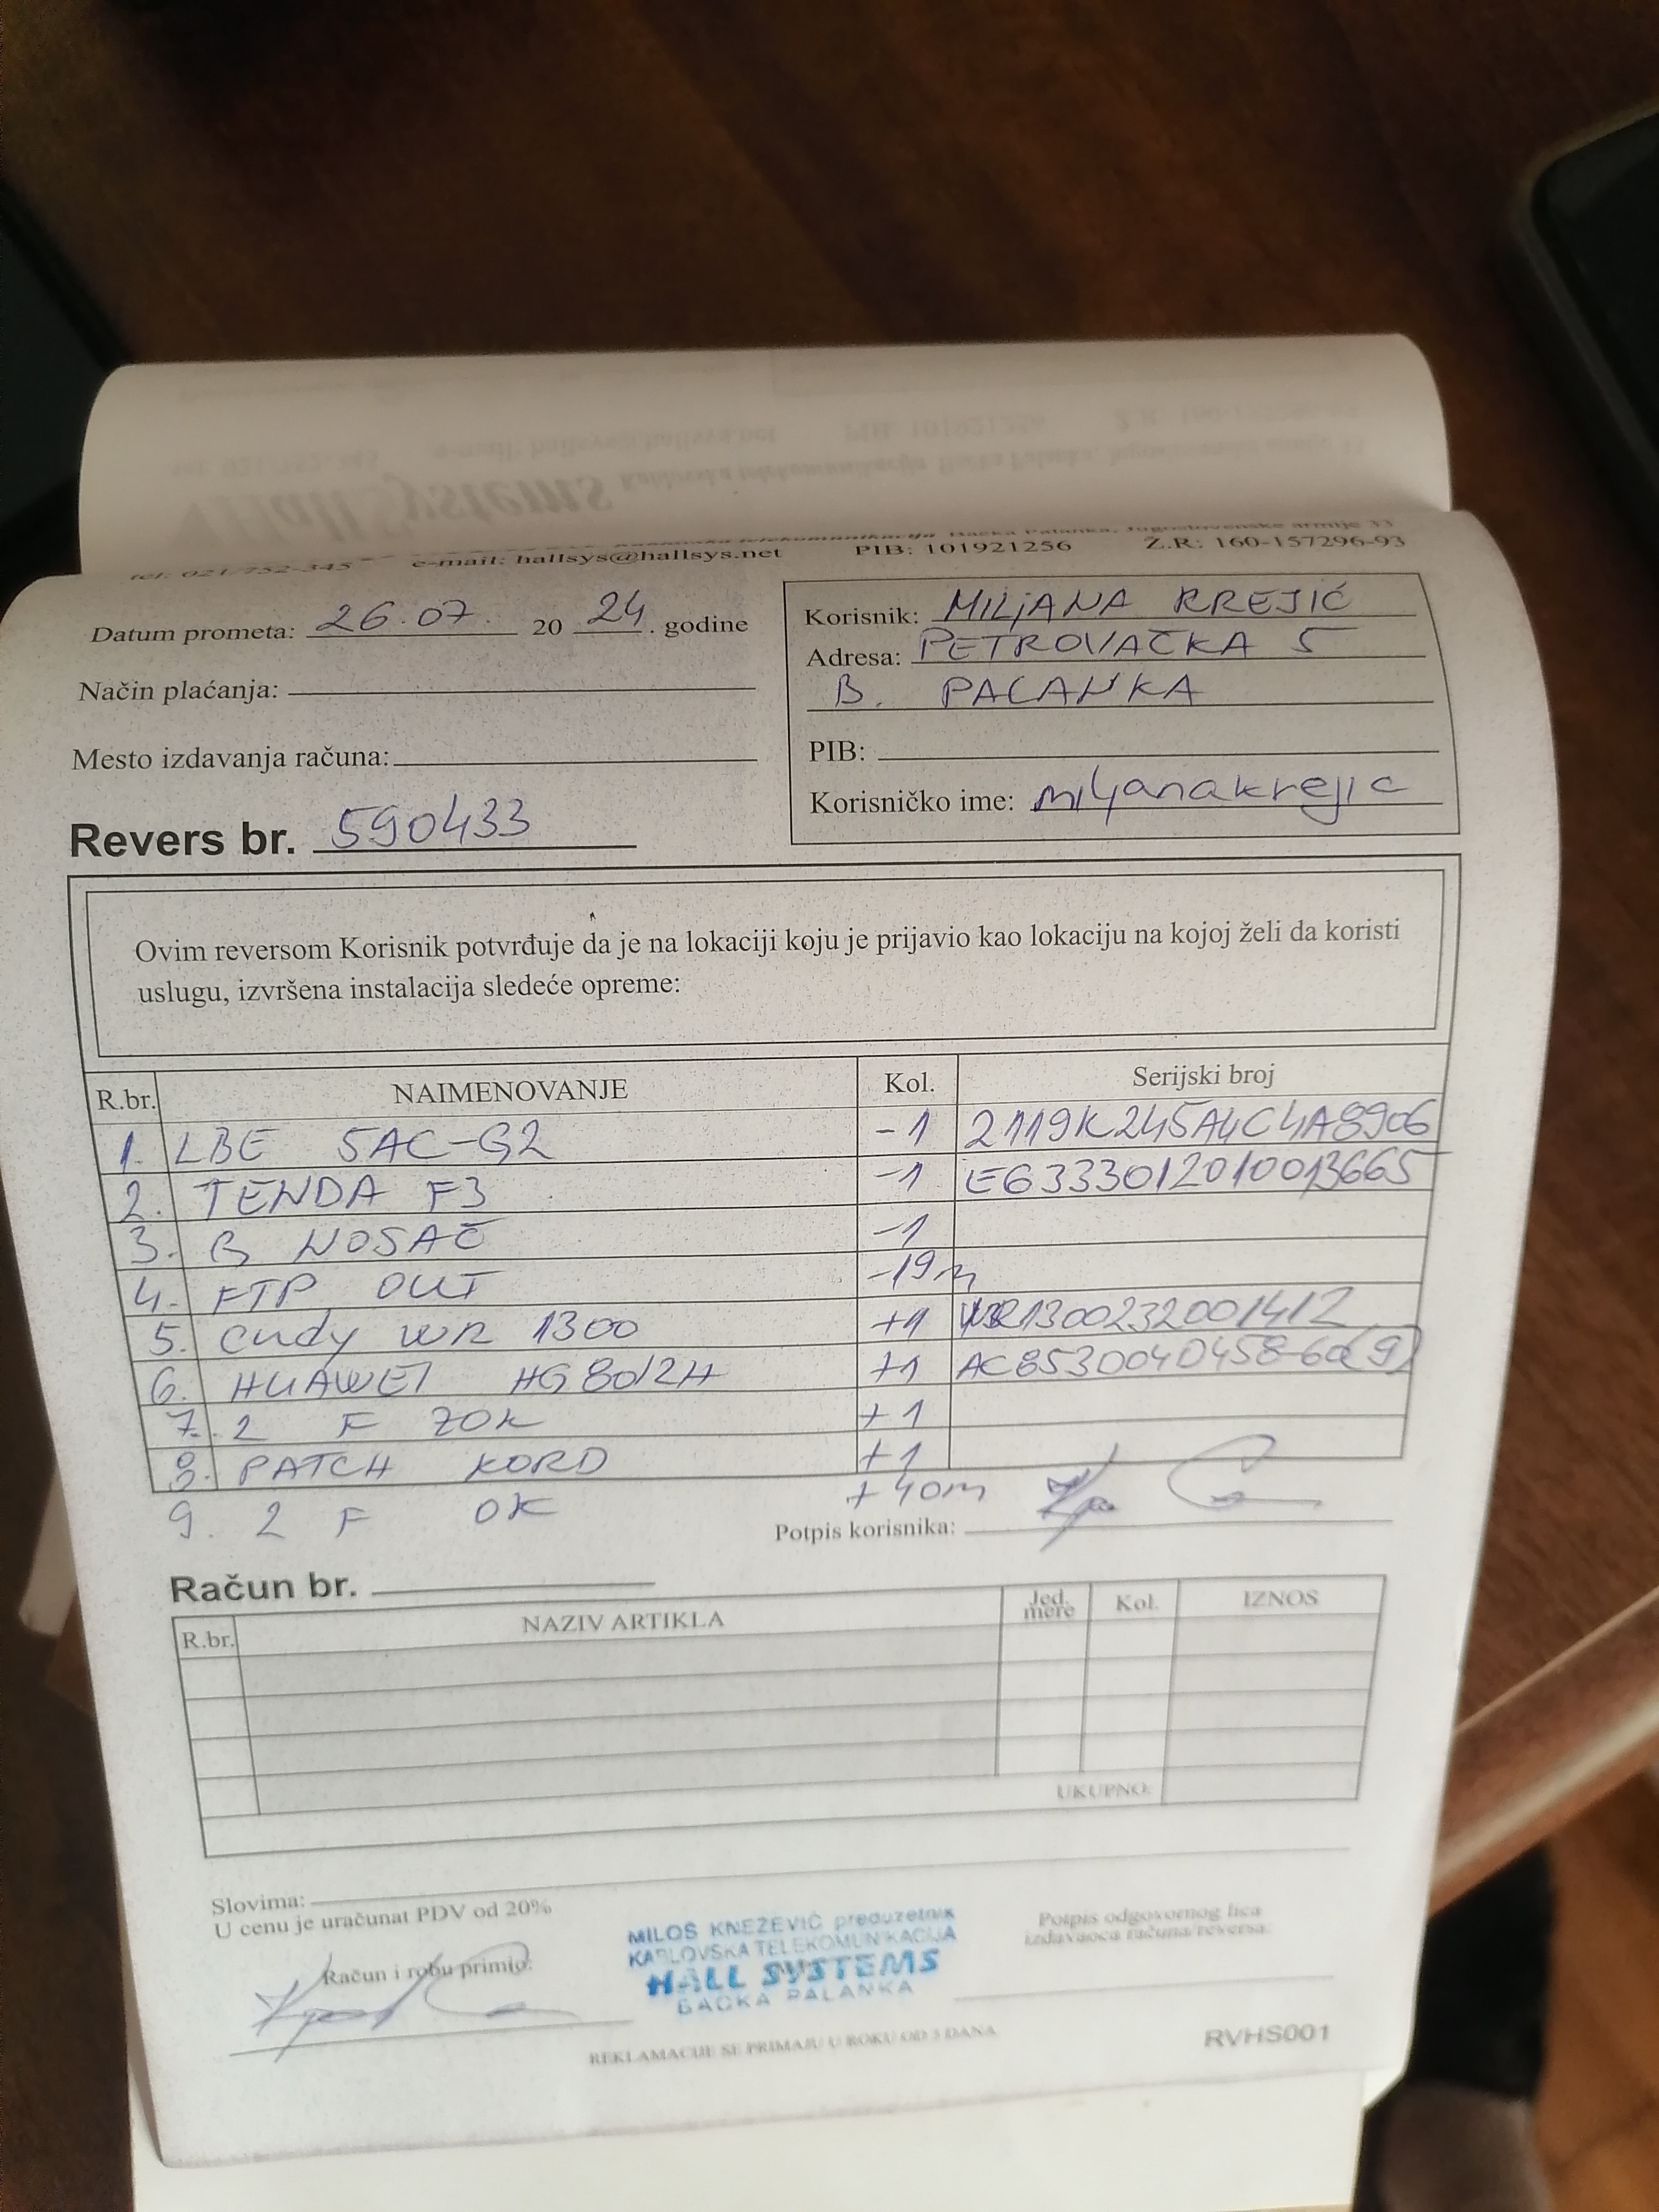 tel: 021/752-345 e-mail: hallsys@hallsys.net PIB: 101921256 Ž.R: 160-157296-93
Datum prometa: 26.07. 20 24. godine
Način plaćanja:
Mesto izdavanja računa:
Revers br. 590433
Korisnik: MILJANA KREJIĆ
Adresa: PETROVAČKA 5
B. PALANKA
PIB:
Korisničko ime: miljanakrejic
Ovim reversom Korisnik potvrđuje da je na lokaciji koju je prijavio kao lokaciju na kojoj želi da koristi
uslugu, izvršena instalacija sledeće opreme:
R.br. NAIMENOVANJE Kol. Serijski broj
1. LBE 5AC-G2 -1 2119K245A4C4A8906
2. TENDA F3 -1 E6333012010013665
3. B NOSAČ -1
4. FTP OUT -19m
5. Cudy WR 1300 +1 WR1300232001412
6. HUAWEI HG8012H +1
7. 2 F ZOK +1
8. PATCH KORD +1
9. 2 F OK +40m
Potpis korisnika:
Račun br.
R.br. NAZIV ARTIKLA Jed. mere Kol. IZNOS
UKUPNO:
Slovima:
U cenu je uračunat PDV od 20%
Račun i robu primio:
MILOŠ KNEŽEVIĆ preduzetnik
KABLOVSKA TELEKOMUNIKACIJA
HALL SYSTEMS
BAČKA PALANKA
Potpis odgovornog lica
izdavaoca računa/reversa:
REKLAMACIJE SE PRIMAJU U ROKU OD 3 DANA
RVHS001